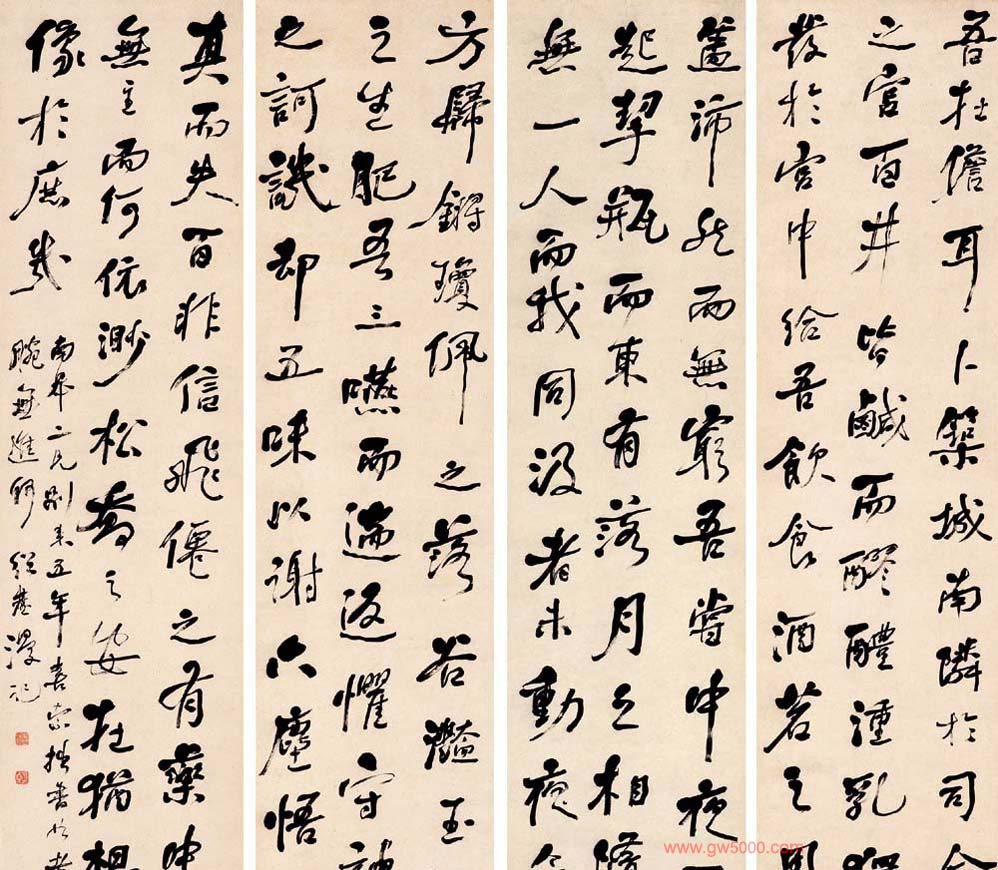 吾在儋耳卜築城南隣於司
之宮百井皆鹹而醪醴湩乳
發於宮中給吾飲食酒茗之用
蓋沛然而無窮吾嘗中夜
起挈瓶而東有落月之相隨
無一人而我同汲者未動夜
方歸鏘瓊佩之落谷灩玉
之生肥吾三嚥而遄返懼守神
之訶譏却五味以謝六塵悟
真而失百非信飛僊之有藥中
無主而何依渺松喬之安在猶想
像於庶幾
南屏二兄別來五年喜索拙書
腕無進 紹基漫記
www.gw5000.com